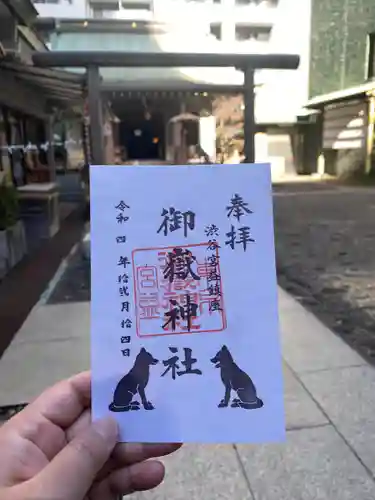 奉拝
渋谷宮益鎮座
御嶽神社
令和四年拾弐月拾四日